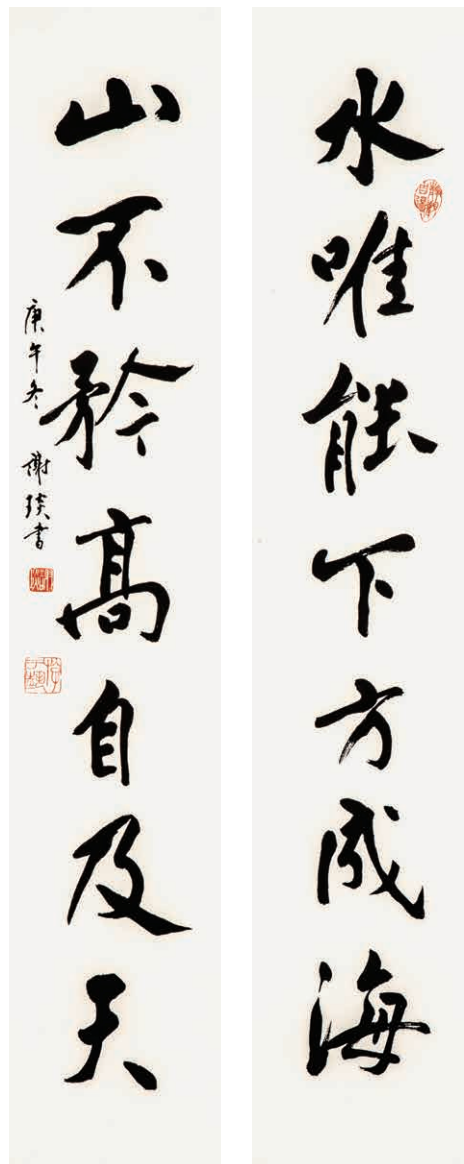 水唯能下方成海
山不矜高自及天
庚午冬 谢琰書